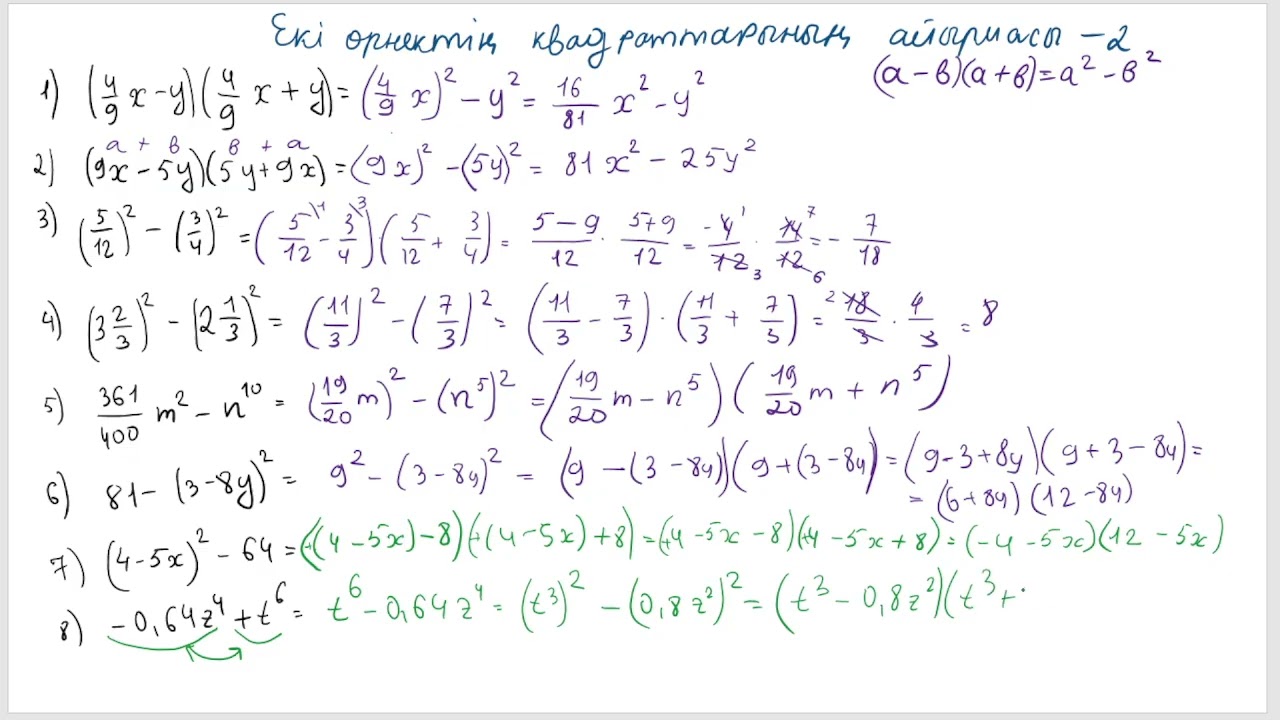 Екі өрнектің квадраттарының айырмасы -2
(a-в)(a+в)=a²-в²
1) (4/9 x-y)(4/9 x+y)=(4/9 x)²-y²=16/81 x²-y²
a + в в + a
2) (9x-5y)(5y+9x)=(9x)²-(5y)²=81x²-25y²
3) (5/12)²-(3/4)²=(5/12-3/4)(5/12+3/4)=5-9/12·5+9/12=-4/12·14/12=-7/18
4) (3 2/3)²-(2 1/3)²=(11/3)²-(7/3)²=(11/3-7/3)·(11/3+7/3)=18/3·4/3=8
5) 361/400 m²-n¹⁰=(19/20 m)²-(n⁵)²=(19/20 m-n⁵)(19/20 m+n⁵)
6) 81-(3-8y)²=9²-(3-8y)²=(9-(3-8y))(9+(3-8y))=(9-3+8y)(9+3-8y)=
=(6+8y)(12-8y)
7) (4-5x)²-64=(+(4-5x)-8)(+(4-5x)+8)=(+4-5x-8)(+4-5x+8)=(-4-5x)(12-5x)
8) -0,64z⁴+t⁶=t⁶-0,64z⁴=(t³)²-(0,8z²)²=(t³-0,8z²)(t³+